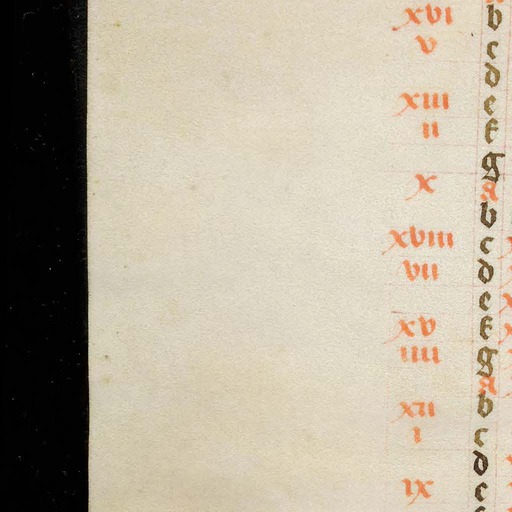 xvi b
v c
d
xiii e
ii f
g
x a
b
xviii c
vii d
e
xv f
iiii g
a
xii b
i c
d
ix e